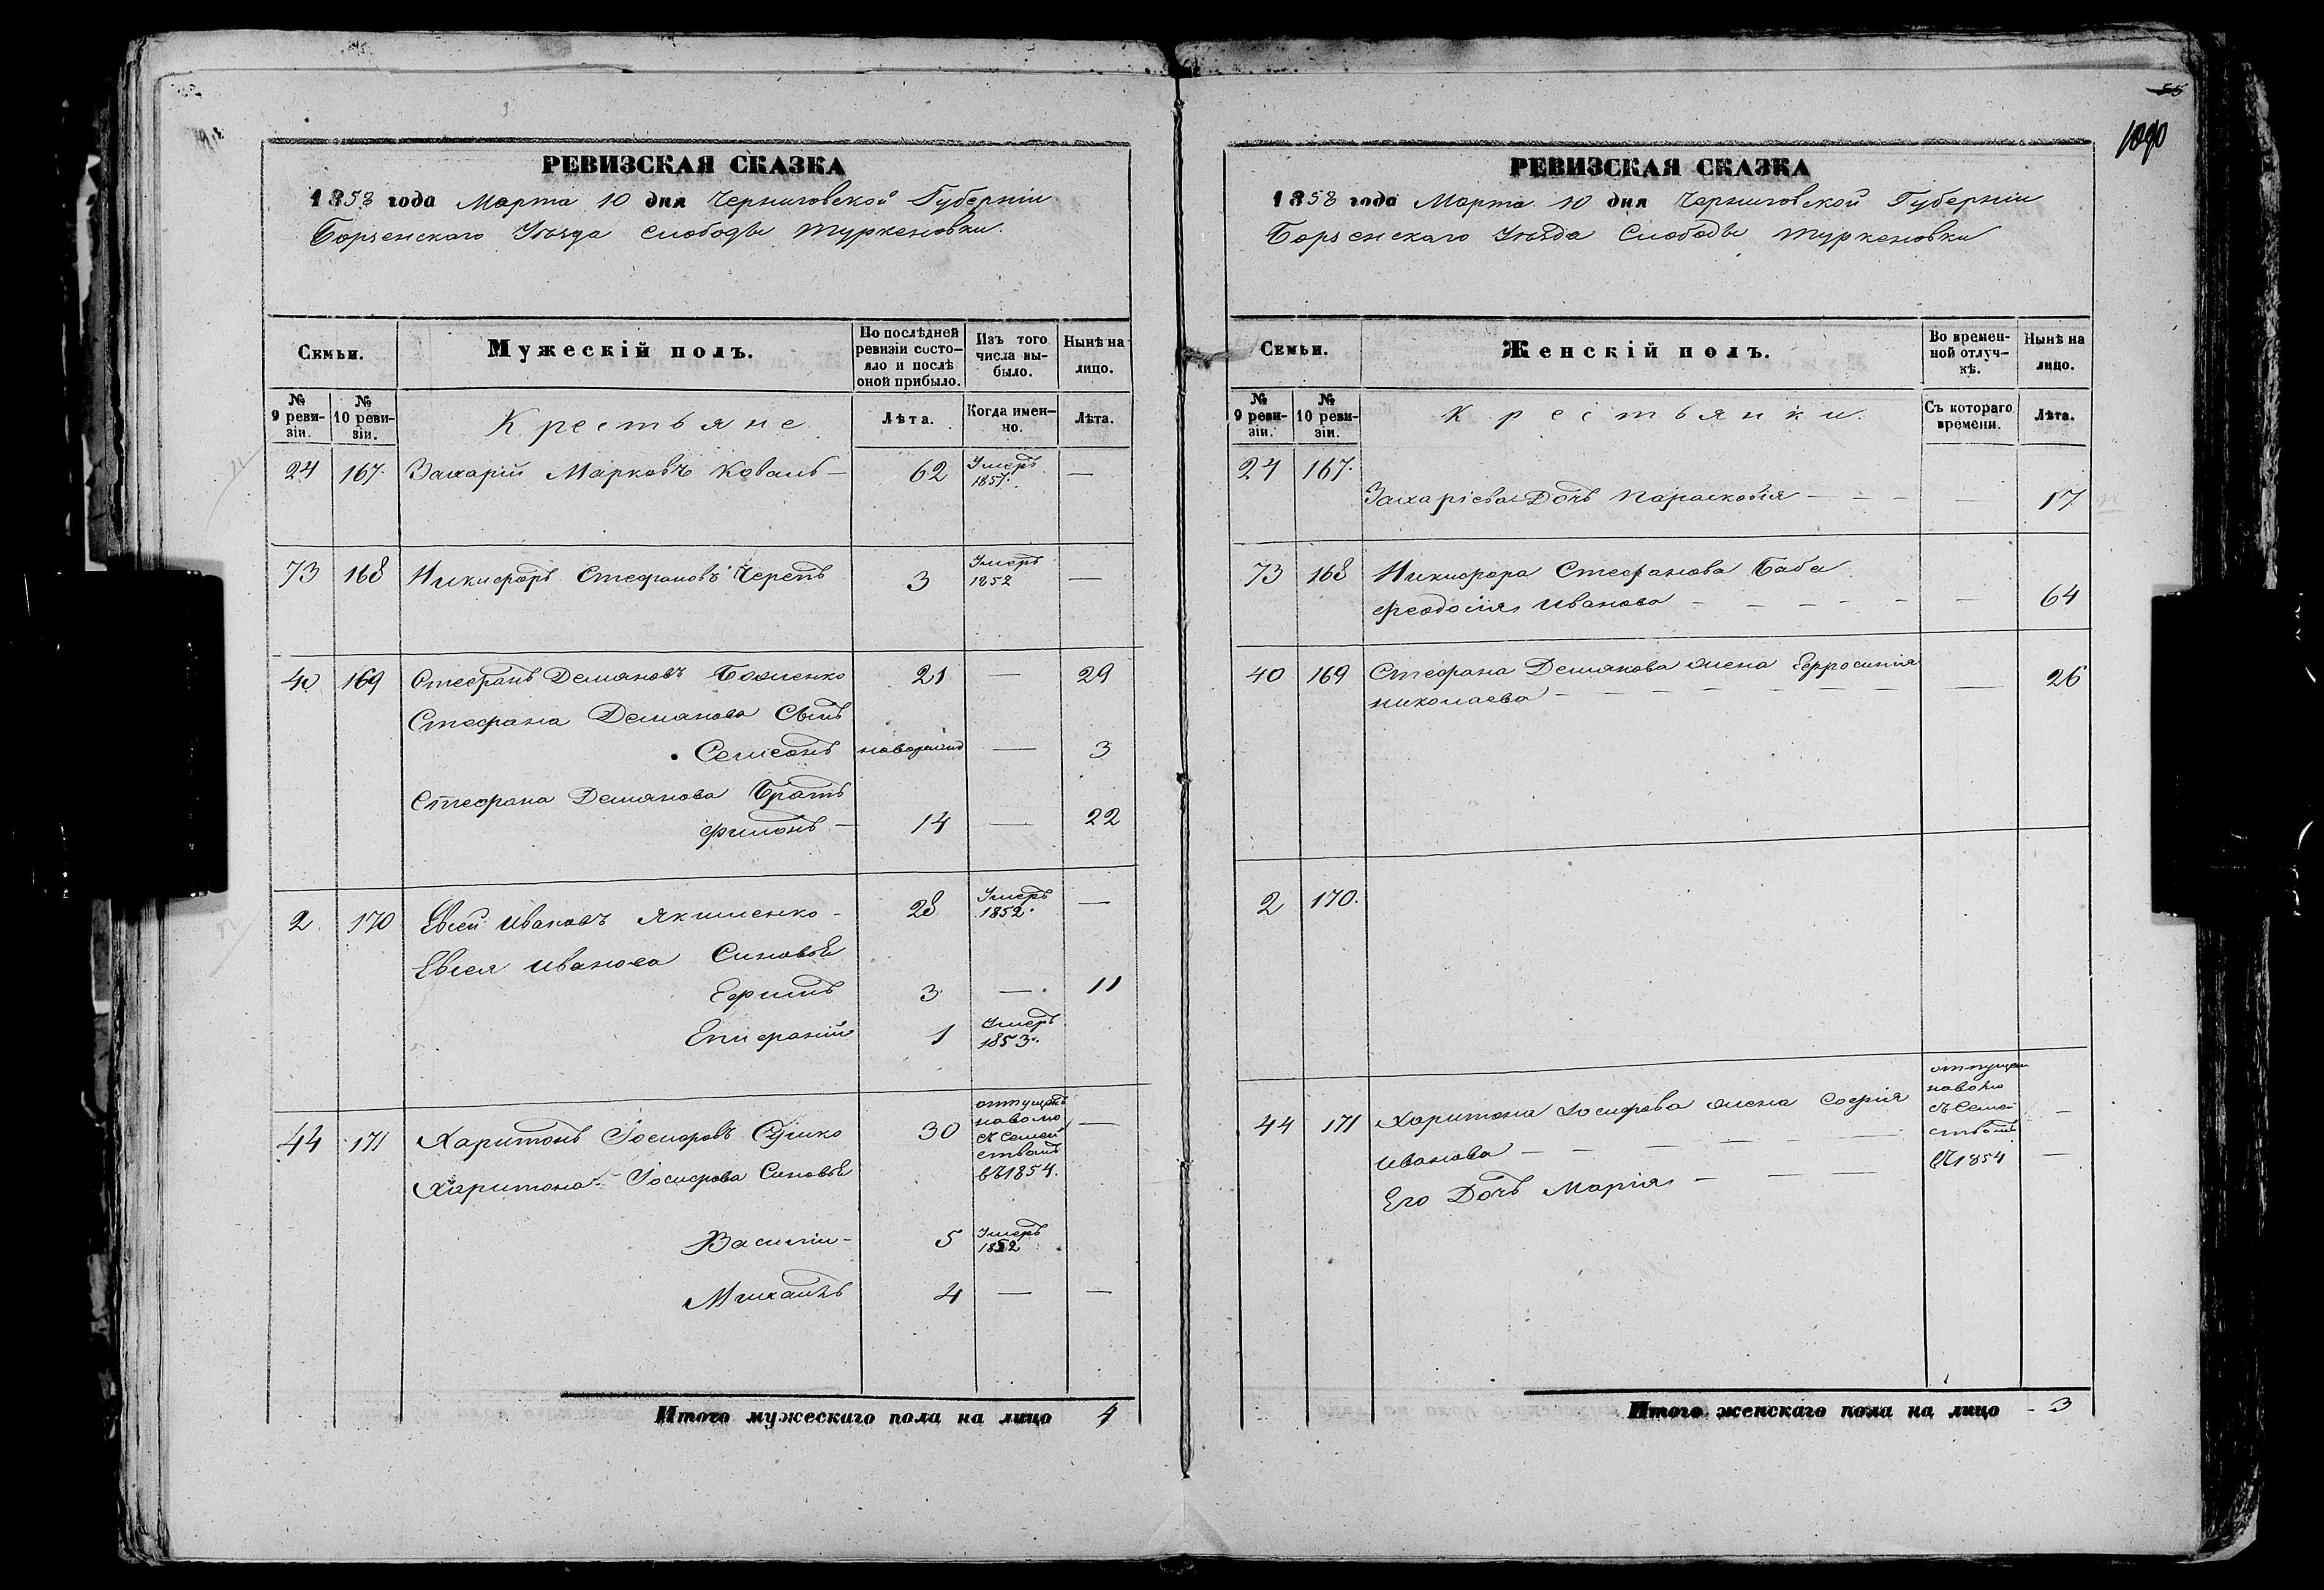 РЕВИЗСКАЯ СКАЗКА
1858 года Марта 10 дня Черниговской Губерніи
Борзенского Уѣзда Слободы Туркеновки.
Семьи.
Мужескій полъ.
По послѣдней ревизіи состояло и послѣ оной прибыло.
Изъ того числа выбыло.
Нынѣ на лицо.
№ 9 ревизіи.
№ 10 ревизіи.
Крестьяне
Лѣта.
Когда именно.
Лѣта.
24 167. Захарій Марковъ Коваль — 62 Умеръ 1857. —
73 168 Никифоръ Стефановъ Черепъ 3 Умеръ 1852 —
40 169 Стефанъ Демяновъ 21 — 29
Стефана Демянова Сынъ
Самсонъ новорожд — 3
Стефана Демянова Братъ
Филонъ — 14 — 22
2 170 Евсей Ивановъ Якименко - 28 Умеръ 1852. —
Евсея Иванова Синовья
Ефимъ 3 — 11
Епифаній 1 Умеръ 1853.
44 171 Харитонъ Іосифовъ 30 отпущенъ наволю съ Семействомъ въ 1854. —
Харитона Іосифова Синовья
Василій - 5 Умеръ 1852
Михаилъ 4 — —
Итого мужескаго пола на лицо 4
55
1090
РЕВИЗСКАЯ СКАЗКА
1858 года Марта 10 дня Черниговской Губерніи
Борзенскаго Уѣзда Слободы Туркеновки
Семьи.
Женскій полъ.
Во временной отлучкѣ.
Нынѣ на лицо.
№ 9 ревизіи.
№ 10 ревизіи.
Крестьянки.
Съ котораго времени.
Лѣта.
24 167.
Захаріева Дочь Параскевія — — — — 17
73 168 Никифора Стефанова Баба
Феодосія Иванова — — — — — 64
40 169 Стефана Демянова жена Ефросинія
Николаева — — — — — 26
2 170.
44 171 Харитона Іосифова жена Софія
Иванова — — — — отпущены наволю съ Семействомъ въ 1854 —
Его Дочь Марія — — — —
Итого женскаго пола на лицо - 3